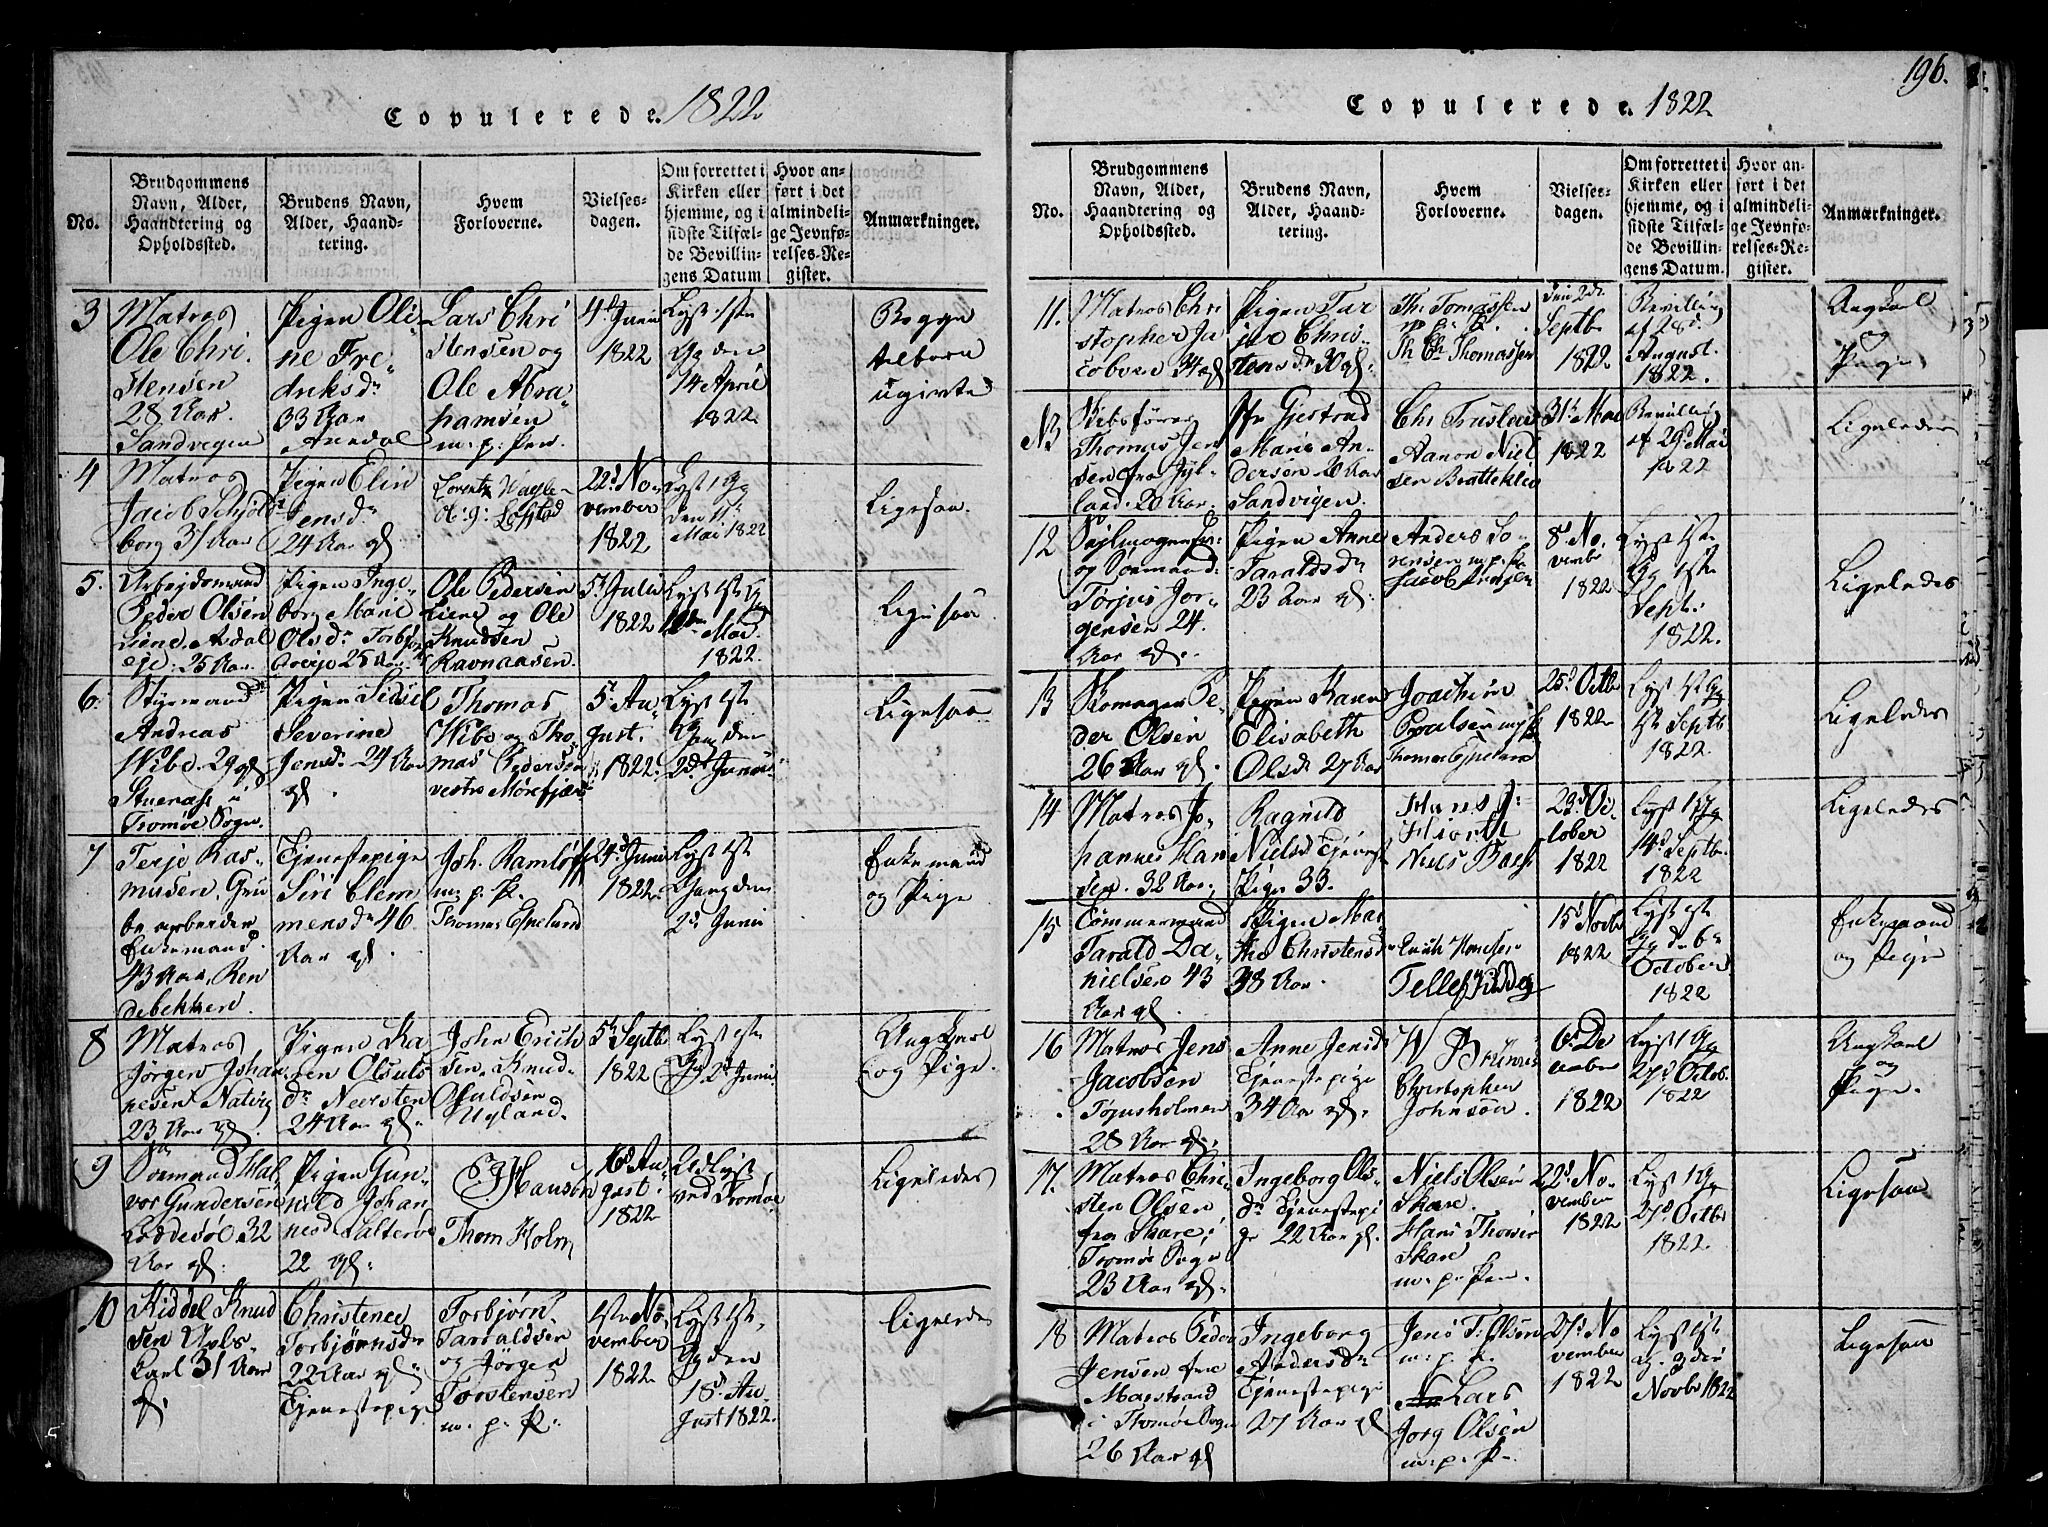 Copulerede. 1822.
No.
Brudgommens
Navn, Alder,
Haandtering og
Opholdssted.
Brudens Navn,
Alder, Haand-
tering.
Hvem
Forloverne.
Vielses-
dagen.
Om forrettet i
Kirken eller
hjemme, og i
sidste Tilfæl-
de Bevillin-
gens Datum
Hvor an-
ført i det
almindeli-
ge Jevnfø-
relses-Re-
gister.
Anmærkninger.
3
Matros
Ole Chri
stensen
28 Aar.
Sandvigen
Pigen Oli
ne Fre-
driksdr
33 Aar
Arendal
Lars Chri
stensen og
Ole Abra-
hamsen
m. p. Pen.
4d Junii
1822
Lyst 1ste
Gg den
14 April
1822
Begge
ugivte
4
Matros
Jacob Schjold
borg 31 Aar
Pigen Elin
Jensdr
24 Aar gl.
Lorentz
22d No-
vember
1822
Lyst 1 Gg
den 11t
Mai 1822
Ligesaa.
5.
Arbejdsmand
Peder Olsen
Liene.
eje: 25 Aar.
Pigen Inge-
borg Marie
Olsdr
25 Aar
Ole Pedersen
Liene og Ole
Knudsen
Ravnaasen.
5t Julii
1822
Lyst 1ste Gg
Mai.
1822.
Ligesaa
6.
Styrmand
Andreas
Wibe. 29 gl
Stuenæs i
Tromøe Sogn.
Pigen Sidsel
Severine
Jensdr. 24 Aar
gl.
Thomas
Wibe og Tho-
mas Pedersen
vestre Mørefjær
5t Au-
gust.
1822.
Lyst 1ste
Gang den
2den Junii
Ligesaa
7
Terje Ras-
musen. Gru
be arbeider
Enkemand.
43 Aar, Ren
debekken.
Tjenestepige
Siri Clem-
mensdr 46
Aar gl.
Joh. Ramløff
m. p. P.
Thomas Espelund
24d Junii
1822
Lyst 1ste
Gang den
2d Junii
Enkemand
og Pige
8
Matros
Jørgen Johan
nesen Natvig
23 Aar gl.
Pigen Ka
ren Olsuls
dr Neersten
24 Aar gl.
John Erich
sen. Knud-
Osuldsen
Ugland.
5t Septb
1822
Lyst 1ste
Gg 2d Junii
Ungkarl
og Pige.
9
Sømand Hal-
vor Gundersen
Loddesøl 32
Aar gl.
Pigen Gun-
nild Johan
nesdr Salterøe
22 gl.
Hansen
Thom Holm
16d Au-
gust
1822
Lyst
ved Tromøe
Ligeledes
10
Kiddel Knud
sen Unge-
karl 31 Aar
gl.
Christence
Torbjørnsdr
22 Aar gl.
Tjenestepige
Torbjørn
Taraldsen
og Jørgen
Torstensen
m. p. P.
1ste No-
vember
1822
Lyst 1ste
Gg den
18d Au
gust 1822.
Ligeledes
196.
Copulerede. 1822
No.
Brudgommens
Navn, Alder,
Haandtering og
Opholdssted.
Brudens Navn,
Alder, Haand-
tering.
Hvem
Forloverne.
Vielses-
dagen.
Om forrettet i
Kirken eller
hjemme, og i
sidste Tilfæl-
de Bevillin-
gens Datum.
Hvor an-
ført i det
almindeli-
ge Jevnfø-
relses-Re-
gister.
Anmærkninger.
11.
Matros Chri
stopher Ja
cobsen 34 gl
Pigen Tar
jer Chris-
tensdr 30 gl.
Th Tomassen
Th Chr Thomassen
den 2de
Septb
1822
Bevilling
af 28d
August.
1822.
Ungkarl
og
Pige
Skibsfører
Thomas Jen
sen fra Jyl-
land. 20 Aar.
Jfr Gjertrud
Marie An-
dersen 20 Aar
Sandvigen
Chr
Aanon Niel
sen Bratteklev
31t Mai
1822
Bevilling
af 29d Mai
1822
Ligeledes
12
og Sømand.
Torjus Jor-
gensen 24.
Aar gl.
Pigen Anne
Taraldsdr
23 Aar gl.
Anders So-
rensen m. p. P.
8d No-
vembr
1822
Lyst 1ste
Gg 1ste
Sept:
1822.
Ligeledes
13
Skomager Pe-
der Olsen
26 Aar gl.
Pigen Karen
Elisabeth
Olsdr 27 Aar
Joachim
Poulsen
Thomas Espelund
25d Octb
1822
Lyst 1st Gg
1st Septb
1822.
Ligeledes
14
Matros Jo-
hannes Han
sen. 32 Aar.
Ragnild
Nielsd Tjenest
Pige 33.
Hans J:
Niels
23d Oc
tober
1822
Lyst 1 Gg
14d Septbr
1822
Ligeledes
15
Tømmermand
Tarald Da-
nielsen 43
Aar gl.
Pigen Mar
the Christensd
38 Aar.
Tellef
15d Novb
1822
Lyst 1ste
Gg d. 6te
October
1822
Enkemand
og Pige
16
Matros Jens
Jacobsen
Torjusholmen
28 Aar gl.
Anne Jensd
Tjenestepige
34 Aar gl.
Christopher
Johnsen.
6d De
cember
1822
Lyst 1 Gg
27d Octob.
1822
Ungkarl
og
Pige.
17.
Matros Chri-
sten Olsen
fra Skare i
Tromøe Sogn
23 Aar gl.
Ingeborg Ols-
dr Tjenestepi
ge 22 Aar gl.
Niels Olsen
Skare.
Hans
Skare
m. p. Pen.
22d No-
vember
1822
Lyst 1 Gg
27d Octbr
1822.
Ligesaa
18
Matros Peder
Jensen fra
Marstrand
i Tromøe Sogn
26 Aar gl
Ingeborg
Andersdr
Tjenestepige
27 Aar gl
Jens T. Olsen
m. p. P.
Lars
Jorg Olsen
m. p. P.
27d No
vember
1822
Lyst 1ste
Gg. 3die
Novbr 1822
Ligesaa